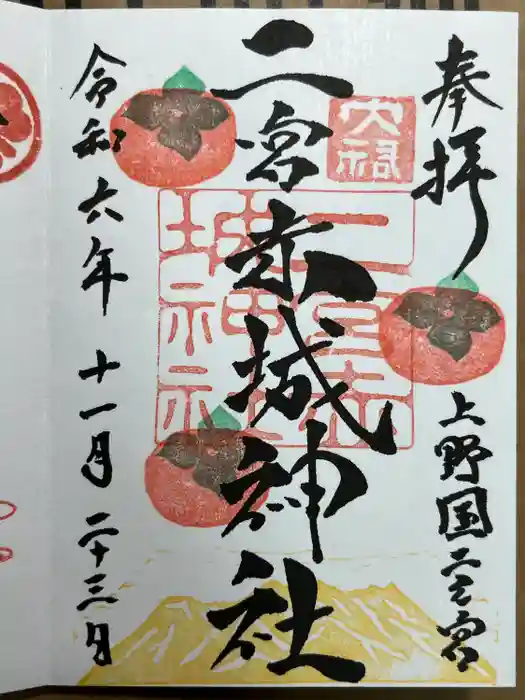 奉拝
上野国二之宮
二宮赤城神社
二宮赤
城神社
令和六年 十一月 二十三日